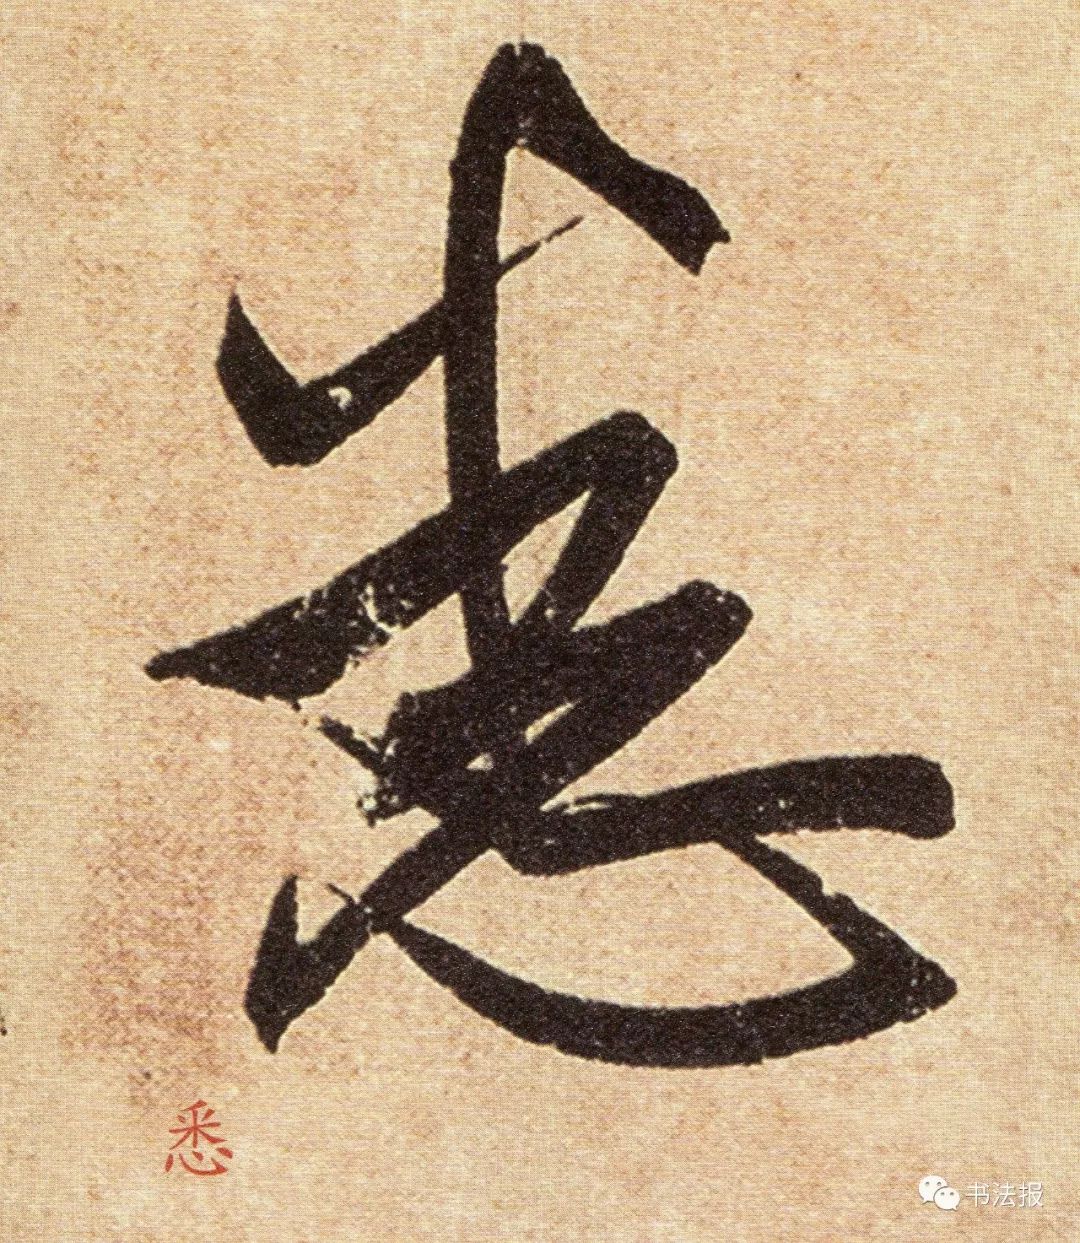 悉
悉
书法报